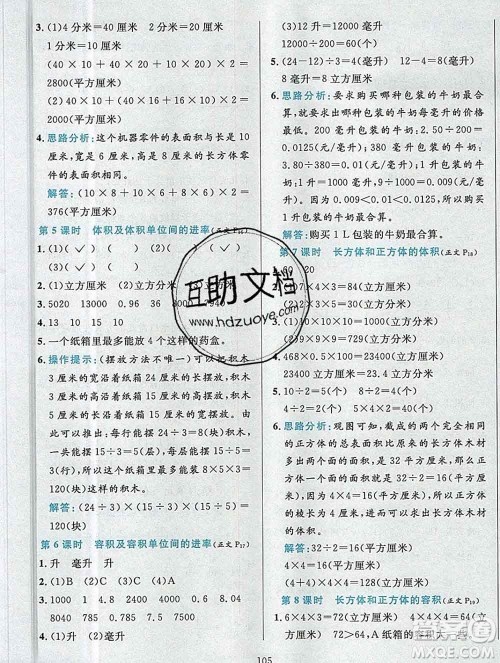 3. (1)4分米=40厘米 2分米=20厘米
1分米=10厘米
(40×10+40×20+10×20)×2=
2800(平方厘米)
(2)(40×10+20×10)×2+40×20=
2000(平方厘米)
4. 思路分析:这个机器零件的表面积与长是 10
厘米,宽是 6 厘米,高是 8 厘米的长方体零
件的表面积相同。
解答:(10×6+10×8+6×8)×2=
376(平方厘米)
第 5 课时 体积及体积单位间的进率
1. (1)✓ (2)
(3)( )✓( )
2. (1)立方厘米 (2)立方分米 (3)立方米
3. 5020 13000 0.96
4. 13 10 15
5. 一个纸箱里最多能放 4 个这样的药盒。
6. 操作提示:(摆放方法不唯一)可以把积木
3 厘米的宽沿着纸箱 24 厘米的长摆放,积木
5 厘米的长沿着纸箱 25 厘米的宽摆放,积木
2 厘米的高沿着纸箱 6 厘米的高摆放。因
此,一行能摆 24÷3=8(块),能摆 25÷5=5
(行),能摆 6÷2=3(层)。8×5×3=120
(块),所以最多能放这样的积木 8×5×3=
120(块)。
解答:(24÷3)×(25÷5)×(6÷2)=
120(块)
第 6 课时 容积及容积单位间的进率(正文 P₁₇)
1. 升 毫升 升
2. (1)B (2)C (3)C (4)A
3. 1000 1 4000 4 8.04
8040 785 0.785 7500 7.5
4. (1)升 毫升 (2)升 (3)毫升 立方米
(3)12 升=12000 毫升
12000÷200=60(个)
5. (24-12)÷3=4(毫升) 12-4=8(毫升)
8 毫升=8 立方厘米
6. 思路分析:要求购买哪种包装的牛奶最合
算,就要求出哪种包装的牛奶每毫升的价格
最低。
0.0125(元/毫升),
3.80÷380=0.01(元/毫升),
9÷1000=0.009(元/毫升),所以购买
1 升包装的牛奶最合算。
解答:购买 1 L包装的牛奶最合算。
第 7 课时 长方体和正方体的体积(正文 P₁₈)
(2)9×9×9=729(立方分米)
4. 468×0.5×100=23400(立方米)
23400÷15=1560(次)
5. (1)10÷2=5(个) 7÷2=3(个)……1
4÷2=2(个) 5×3×2=30(个)
6. 思路分析:观察图可知,截成的两个完全相同
的正方体的总表面积比原来的长方体木材多
32 平方厘米,多的 32 平方厘米是正方体两
个面的面积,则正方体木材一个面的面积是
32÷2=16(平方厘米),所以正方体的棱长
是 4 厘米,进而可求出每个正方体木材的体
积。
解答:32÷2=16(平方厘米)
16=4×4 4×4×4=64(立方厘米)
第 8 课时 长方体和正方体的容积(正文 P₁₉)
1. 6×4×3=72(立方分米)
4×4×4=64(立方分米)
72>64,A 纸箱的容积大一些。
105
互助文档
www.hdzuoye.com
作业精灵
MXQE.COM